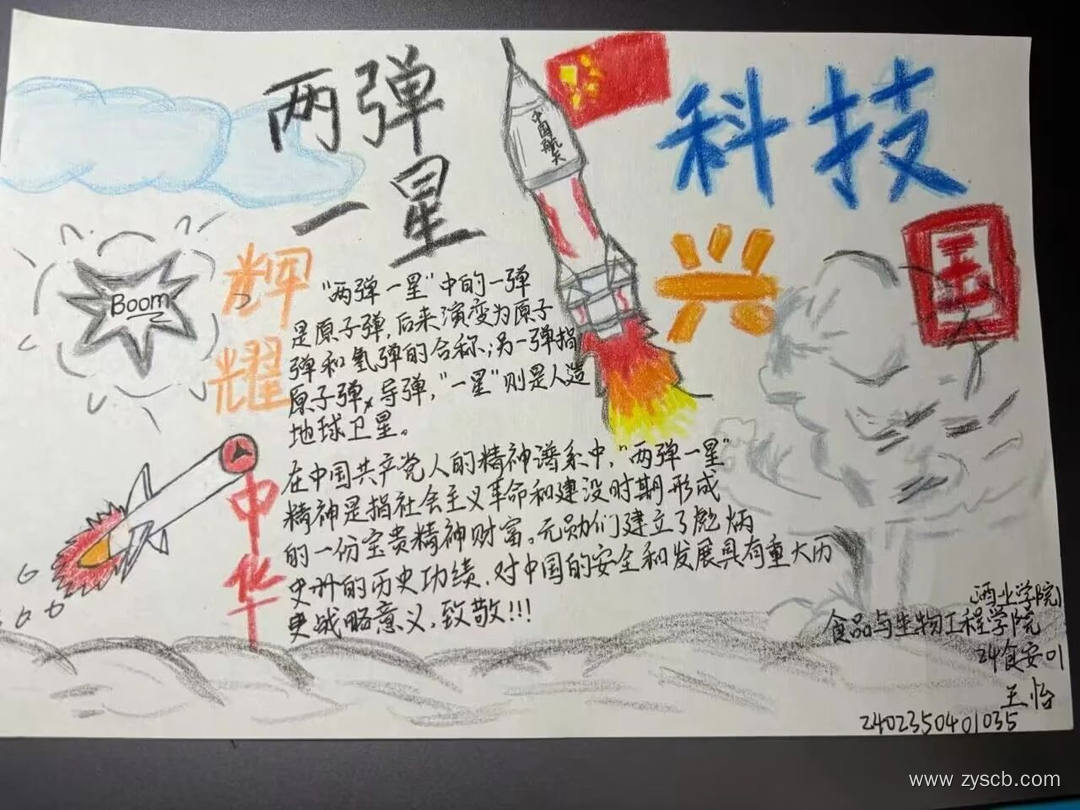 两弹
一星
科技
兴
国
中国航天
Boom
辉
耀
中
华
"两弹一星"中的一弹
是原子弹,后来演变为原子
弹和氢弹的合称;另一弹指
原子弹、导弹,"一星"则是人造
地球卫星。
在中国共产党人的精神谱系中,"两弹一星"
精神是指社会主义革命和建设时期形成
的一份宝贵精神财富。元勋们建立了彪炳
史册的历史功绩,对中国的安全和发展具有重大历
史战略意义,致敬!!!
酒业学院
食品与生物工程学院
24食安01
王怡
2402350401035
www.zyscb.com